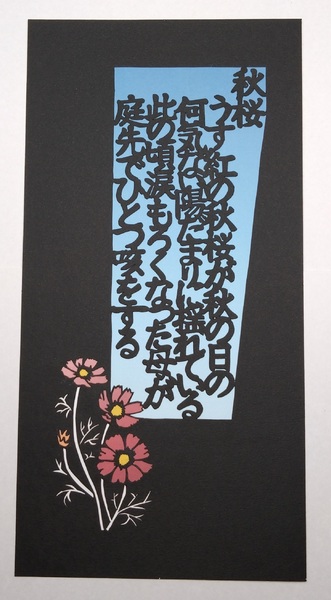 秋桜
うす紅の秋桜が秋の日の
何気ない陽だまりに揺れている
此の頃涙もろくなった母が
庭先でひとつ咳をする